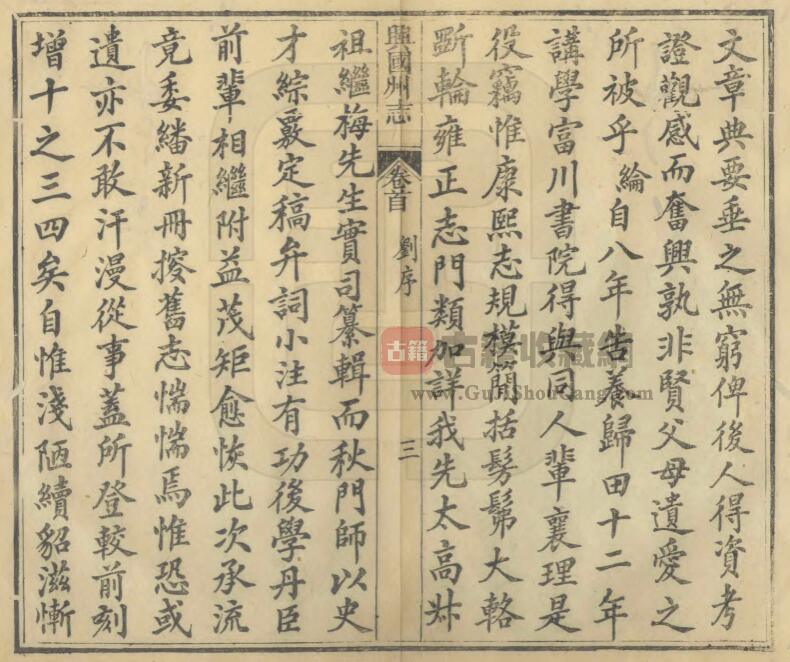 文章典要垂之無窮俾後人得資考
證觀感而奮興孰非賢父母遺愛之
所被乎綸自八年告養歸田十二年
講學富川書院得與同人輩襄理是
役竊惟康熙志規模簡括髣髴大輅
斲輪雍正志門類加詳我先太高叔
興國州志 卷首 劉序 三
祖繼梅先生實司纂輯而秋門師以史
才綜覈定稿弁詞小注有功後學丹臣
前輩相繼附益茂矩愈恢此次承流
竟委繙新冊搜舊志惴惴焉惟恐或
遺亦不敢汗漫從事蓋所登較前刻
增十之三四矣自惟淺陋續貂滋慚
古籍 古籍收藏網
www.GuJiShouCang.com